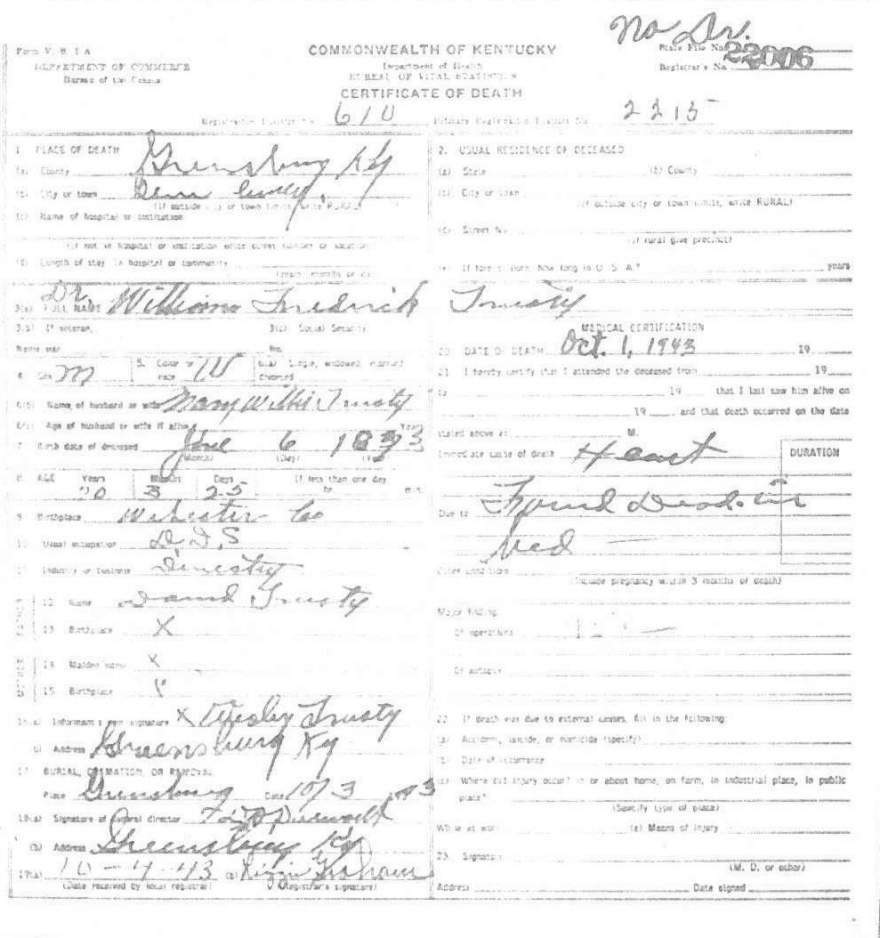 No Dr.
Form V. S. 1 A
DEPARTMENT OF COMMERCE
Bureau of the Census
COMMONWEALTH OF KENTUCKY
Department of Health
BUREAU OF VITAL STATISTICS
CERTIFICATE OF DEATH
State File No. 22006
Registrar's No.
Registration District No. 610
Primary Registration District No. 2215
1. PLACE OF DEATH
(a) County Greensburg Ky
(b) City or town
(If outside city or town limits, write RURAL)
(c) Name of hospital or institution
(If not in hospital or institution write street number or location)
(d) Length of stay in hospital or community
(years, months or days)
2. USUAL RESIDENCE OF DECEASED
(a) State (b) County
(c) City or town
(If outside city or town limits, write RURAL)
(d) Street No.
(If rural give precinct)
(e) If foreign born, how long in U. S. A.? years
3(a) FULL NAME Dr. William Fredrick Trusty
3(b) If veteran,
Name war
3(c) Social Security
No.
4. Sex M
5. Color or race W
6(a) Single, widowed, married
divorced
6(b) Name of husband or wife Mary Willie Trusty
6(c) Age of husband or wife if alive Years
7. Birth date of deceased June 6 1873
(Month) (Day) (Year)
8. AGE Years Months Days If less than one day
70 3 25 hr. min.
9. Birthplace Webster Co
10. Usual occupation D.D.S
11. Industry or business
FATHER
12. Name David Trusty
13. Birthplace X
MOTHER
14. Maiden name X
15. Birthplace
16(a) Informant's own signature X Wesley Trusty
(b) Address Greensburg Ky
17. BURIAL, CREMATION, OR REMOVAL
Place Greensburg Date 10/3 1943
18(a) Signature of funeral director
(b) Address Greensburg Ky
19(a) 10-4-43 (b) Lizzie Graham
(Date received by local registrar) (Registrar's signature)
MEDICAL CERTIFICATION
20. DATE OF DEATH Oct. 1, 1943 19
21. I hereby certify that I attended the deceased from 19
to 19 that I last saw him alive on
19 and that death occurred on the date
stated above at M.
Immediate cause of death Heart
DURATION
Due to Found Dead in
bed
Other conditions
(Include pregnancy within 3 months of death)
Major finding
Of operations
Of autopsy
22. If death was due to external causes, fill in the following:
(a) Accident, suicide, or homicide (specify)
(b) Date of occurrence
(c) Where did injury occur? in or about home, on farm, in industrial place, in public
place?
(Specify type of place)
While at work (e) Means of injury
23. Signature
(M. D. or other)
Address Date signed